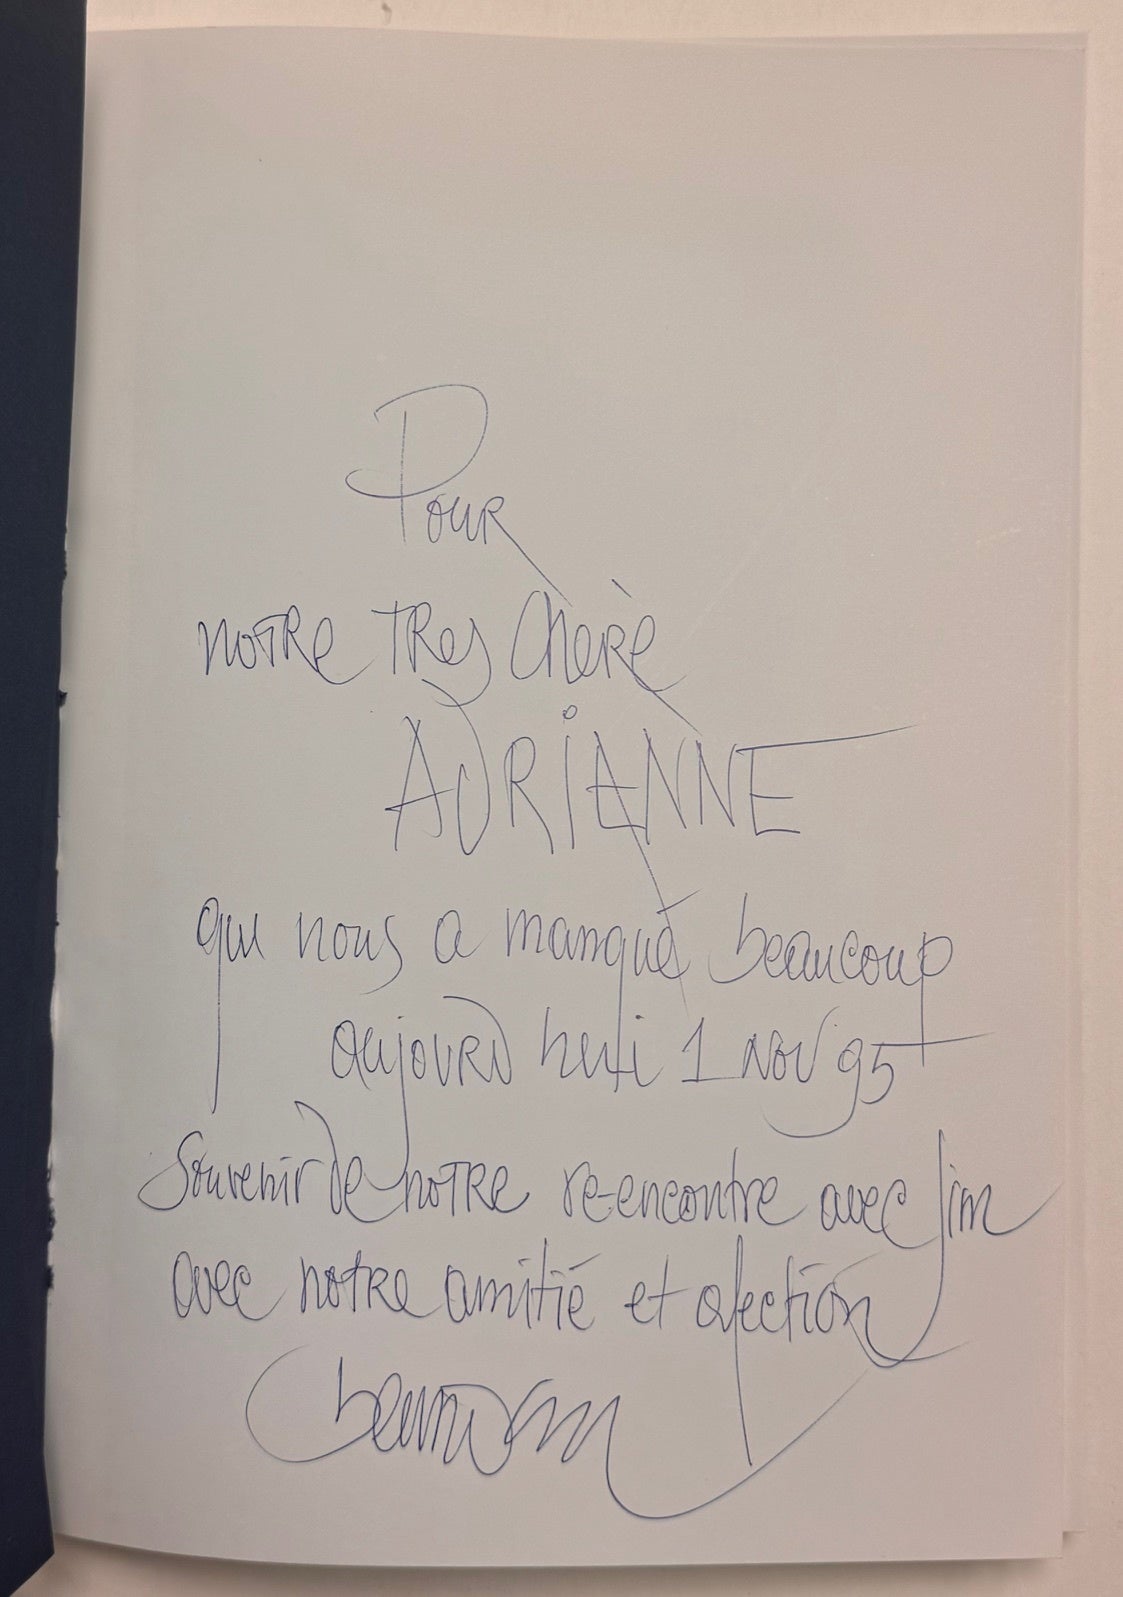 Pour
notre tres cherè
ADRIANNE
qui nous a manqué beaucoup
aujourd hui 1 nov 95
Souvenir de notre re-encontre avec Jim
avec notre amitié et afection